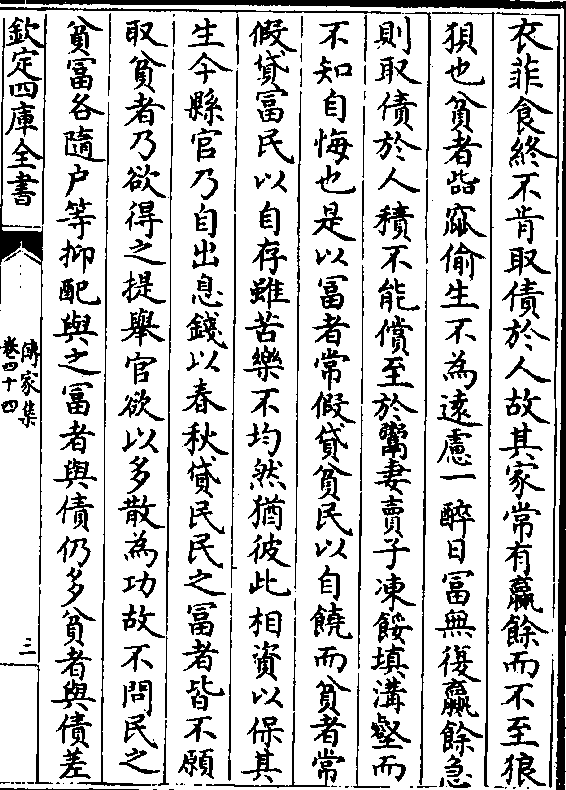 衣菲食終不肯取債於人故其家常有贏餘而不至狼
狽也貧者啙窳偷生不為逺慮一醉日富無復贏餘急
則取債於人積不能償至於鬻妻賣子凍餒填溝壑而
不知自悔也是以富者常假貸貧民以自饒而貧者常
假貸富民以自存雖苦樂不均然猶彼此相資以保其
生今縣官乃自出息錢以春秋貸民民之富者皆不願
取貧者乃欲得之提舉官欲以多散為功故不問民之
貧富各隨户等抑配與之富者與債仍多貧者與債差
欽定四庫全書
傳家集
卷四十四
三